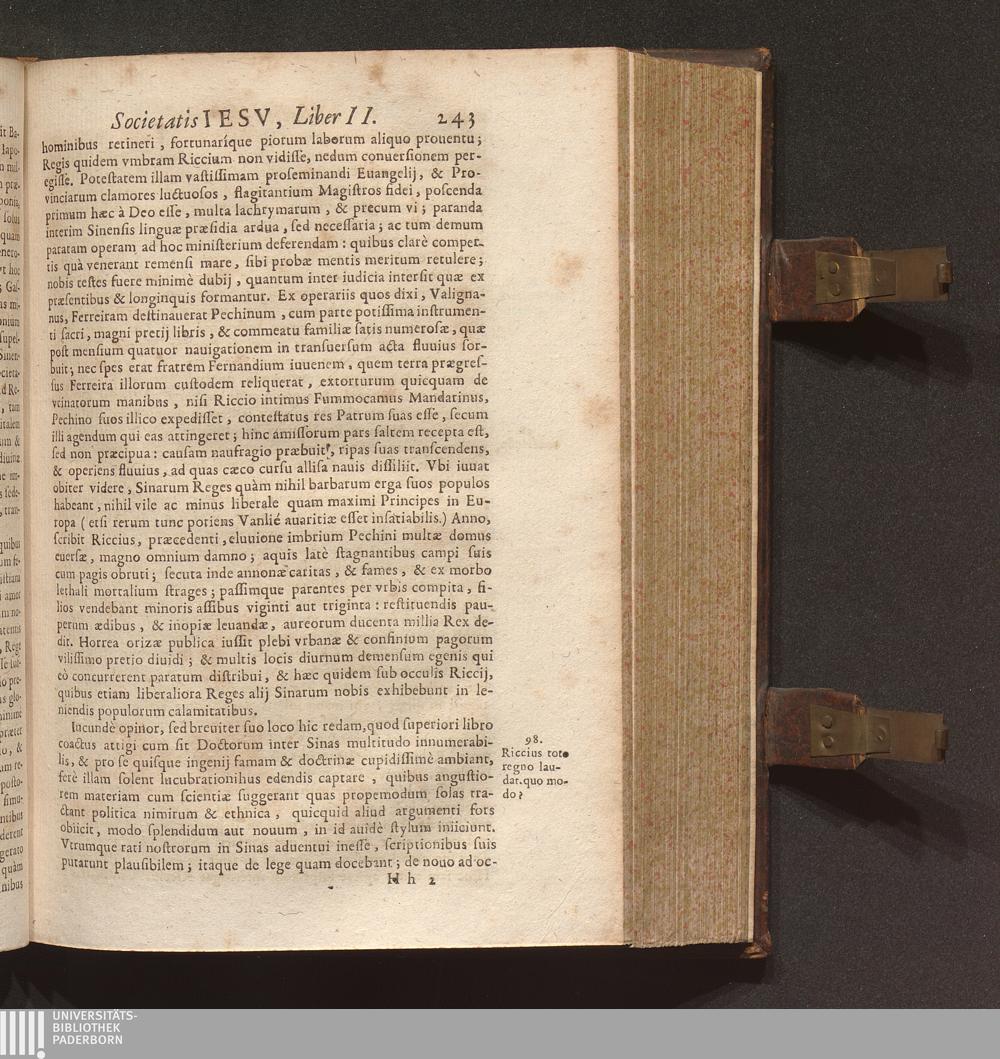 Societatis IESV, Liber II. 243
hominibus retineri, fortunaríque piorum laborum aliquo prouentu;
Regis quidem vmbram Riccium non vidiſſe, nedum conuerſionem per-
egiſſe. Poteſtatem illam vaſtiſſimam proſeminandi Euangelij, & Pro-
vinciarum clamores luctuoſos, flagitantium Magiſtros fidei, poſcenda
primum hæc à Deo eſſe, multa lachrymarum, & precum vi; paranda
interim Sinenſis linguæ præſidia ardua, ſed neceſſaria; ac tum demum
paratam operam ad hoc miniſterium deferendam: quibus clarè comper-
tis quà venerant remenſi mare, ſibi probæ mentis meritum retulere;
nobis teſtes fuere minimè dubij, quantum inter iudicia interſit quæ ex
præſentibus & longinquis formantur. Ex operariis quos dixi, Valigna-
nus, Ferreiram deſtinauerat Pechinum, cum parte potiſſima inſtrumen-
ti ſacri, magni pretij libris, & commeatu familiæ ſatis numeroſæ, quæ
poſt menſium quatuor nauigationem in tranſuerſum acta fluuius ſor-
buit; nec ſpes erat fratrem Fernandium iuuenem, quem terra prægreſ-
ſus Ferreira illorum cuſtodem reliquerat, extorturum quicquam de
vcinatorum manibus, niſi Riccio intimus Fummocamus Mandarinus,
Pechino ſuos illico expediſſet, conteſtatus res Patrum ſuas eſſe, ſecum
illi agendum qui eas attingeret; hinc amiſſorum pars ſaltem recepta eſt,
ſed non præcipua: cauſam naufragio præbuit, ripas ſuas tranſcendens,
& operiens fluuius, ad quas cæco curſu alliſa nauis diſſiliit. Vbi iuuat
obiter videre, Sinarum Reges quàm nihil barbarum erga ſuos populos
habeant, nihil vile ac minus liberale quam maximi Principes in Eu-
ropa (etſi rerum tunc potiens Vanlié auaritiæ eſſet inſatiabilis.) Anno,
ſcribit Riccius, præcedenti, eluuione imbrium Pechini multæ domus
euerſæ, magno omnium damno; aquis latè ſtagnantibus campi ſuis
cum pagis obruti; ſecuta inde annonæ caritas, & fames, & ex morbo
lethali mortalium ſtrages; paſſimque parentes per vrbis compita, fi-
lios vendebant minoris aſſibus viginti aut triginta: reſtituendis pau-
perum ædibus, & inopiæ leuandæ, aureorum ducenta millia Rex de-
dit. Horrea orizæ publica iuſſit plebi vrbanæ & confinium pagorum
viliſſimo pretio diuidi; & multis locis diurnum demenſum egenis qui
eò concurrerent paratum diſtribui, & hæc quidem ſub occulis Riccij,
quibus etiam liberaliora Reges alij Sinarum nobis exhibebunt in le-
niendis populorum calamitatibus.
Iucundè opinor, ſed breuiter ſuo loco hic redam, quod ſuperiori libro
coactus attigi cum ſit Doctorum inter Sinas multitudo innumerabi-
lis, & pro ſe quiſque ingenij famam & doctrinæ cupidiſſimè ambiant,
ferè illam ſolent lucubrationihus edendis captare, quibus anguſtio-
rem materiam cum ſcientiæ ſuggerant quas propemodum ſolas tra-
ctant politica nimirum & ethnica, quicquid aliud argumenti fors
obiicit, modo ſplendidum aut nouum, in id auidè ſtylum iniiciunt.
Vtrumque rati noſtrorum in Sinas aduentui ineſſe, ſcriptionibus ſuis
putarunt plauſibilem; itaque de lege quam docebant; de nouo ad oc-
H h 2
98.
Riccius toto
regno lau-
dat. quo mo-
do?
UNIVERSITÄTS-
BIBLIOTHEK
PADERBORN